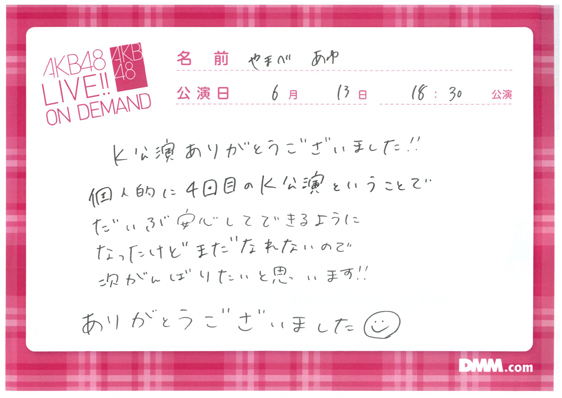 AKB48
LIVE!!
ON DEMAND
AKB
48
名前 やまべ あゆ
公演日 6月 13日 18:30 公演
K公演ありがとうございました!!
個人的に4回目のK公演ということで
だいぶ安心してできるように
なったけどまだなれないので
次がんばりたいと思います!!
ありがとうございました
DMM.com